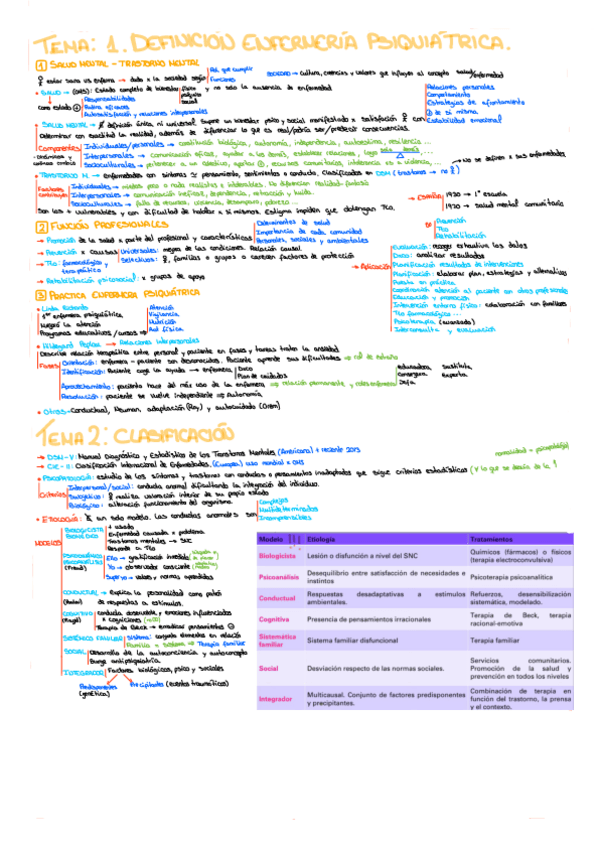 TEMA: 1. DEFINICIÓN ENFERMERÍA PSIQUIÁTRICA.
1 SALUD MENTAL - TRASTORNO MENTAL
estar sana vs enferma → dado x la sociedad según
Rol que cumplir
Funciones
SOCIEDAD → cultura, creencias y valores que influyen al concepto salud/enfermedad
SALUD → (OMS): Estado completo de bienestar
físico
psíquico
social
y no solo la ausencia de enfermedad
como estado
Responsabilidades
Rutina eficaces
Autosatisfacción y relaciones interpersonales
Relaciones personales
Comportamiento
Estrategias de afrontamiento
de sí mismo
Estabilidad emocional
SALUD MENTAL → definición única, ni universal. Supone un bienestar psico y social manifestado x satisfacción
Determinar con exactitud la realidad, además de diferenciar lo que es real/podría ser/predecir consecuencias.
Componentes
Individuales/personales → constitución biológica, autonomía, independencia, autoestima, resiliencia ...
Interpersonales → comunicación eficaz, ayudar a los demás, establecer relaciones,
Socioculturales → pertenecer a un colectivo, recursos comunitarios, intolerancia es a violencia, ...
TRASTORNO M. → enfermedades con síntomas pensamiento, sentimientos o conducta. Clasificados en DSM (trastornos → no)
No se definen x sus enfermedades
Factores contribuyen
Individuales →
Interpersonales → comunicación ineficaz, dependencia, retracción y huida.
Socioculturales → falta de recursos, violencia, desamparo, pobreza ...
Son los + vulnerables y con dificultad de valorar x sí mismos. Estigma impiden que obtengan Tto.
ESPAÑA
1930 → 1º escuela
1970 → salud mental comunitaria
2 FUNCIÓN PROFESIONALES
Promoción de la salud x parte del profesional y características
Determinantes de salud
Importancia de cada comunidad
Personales, sociales y ambientales
Prevención → causas
Universales: mejora de las condiciones. Relación causal.
Selectivos: familias o grupos o carecen factores de protección
Tto: farmacológico y terapéutico
Rehabilitación psicosocial: grupos de apoyo
Prevención
Tto
Rehabilitación
Aplicación
Evaluación: recoger exhaustiva los datos
Dxco: analizar resultados
Planificación resultados de intervenciones
Planificación: elaborar plan, estrategias y alternativas
Puesta en práctica
Coordinación atención al paciente con otros profesionales
Educación y promoción
Intervención entorno físico: colaboración con familiares
Tto farmacológico ...
Psicoterapia (avanzado)
Interconsulta y evaluación
3 PRACTICA ENFERMERIA PSIQUIÁTRICA
Linda Richards
1ª enfermera psiquiátrica
Mejoró la atención
Programas educativos / cursos
Atención
Vigilancia
Nutrición
Act. física
Hildegard Peplau → Relaciones interpersonales
Describe relación terapéutica entre personal y paciente en fases y tareas tratan la ansiedad
Fases
Orientación: enfermera - paciente son desconocidos. Paciente aprende sus dificultades → rol de extraño
Identificación: Paciente coge la ayuda → enfermera
Dxco
Plan de cuidados
Aprovechamiento: paciente hace del más uso de la enfermera → relación permanente y roles enfermera
educadora, sustituta,
consejera, experta
Jefa.
Resolución: paciente se vuelve independiente → Autonomía
Otros → Conductual, Neuman, adaptación (Roy) y autocuidado (Orem)
TEMA 2: CLASIFICACIÓN
DSM-V: Manual Diagnóstico y Estadístico de los Trastornos Mentales (Americana) + reciente 2013
CIE-11: Clasificación Internacional de Enfermedades, (Europea) uso mundial x OMS
PSICOPATOLOGÍA: estudio de los síntomas y trastornos con conductas o pensamientos inadaptados que sigue criterios estadísticos (y lo que se desvía de la
Criterios
Interpersonal/social: conducta anormal dificultando la integración del individuo.
Subjetivo: realiza valoración interior de su propio estado
Biológico: alteración funcionamiento del organismo.
ETIOLOGÍA: un solo modelo. Las conductas anormales son
Complejas
Multideterminadas
Incomprensibles
MODELOS
BIOLOGICISTA BIOMÉDICO
+ usado
Enfermedad causada x problema
Trastornos mentales → SNC
Responde a Tto
PSICODINÁMICO PSICOANÁLISIS (Freud)
Ello → gratificación inmediata
Yo → observador consciente
SuperYo → valores y normas aprendidas
CONDUCTUAL → Explica la personalidad como patrón de respuestas a estímulos.
COGNITIVO: conducta observable, y emociones influenciados x cogniciones
Terapia de Beck → erradicar pensamientos
SISTÉMICO FAMILIAR sistema: conjunto elementos en relación
Familia = Sistema → Terapia familiar
SOCIAL Desarrollo de la autoconciencia y autoconcepto
Surge antipsiquiatría.
INTEGRADOR Factores biológicos, psico y sociales
Predisponentes (genética)
Precipitantes (eventos traumáticos)
Modelo Etiología Tratamientos
Biologicista Lesión o disfunción a nivel del SNC Químicos (fármacos) o físicos (terapia electroconvulsiva)
Psicoanálisis Desequilibrio entre satisfacción de necesidades e instintos Psicoterapia psicoanalítica
Conductual Respuestas desadaptativas a estímulos ambientales. Refuerzos, desensibilización sistemática, modelado.
Cognitiva Presencia de pensamientos irracionales Terapia de Beck, terapia racional-emotiva
Sistemática familiar Sistema familiar disfuncional Terapia familiar
Social Desviación respecto de las normas sociales. Servicios comunitarios. Promoción de la salud y prevención en todos los niveles
Integrador Multicausal. Conjunto de factores predisponentes y precipitantes. Combinación de terapia en función del trastorno, la prensa y el contexto.